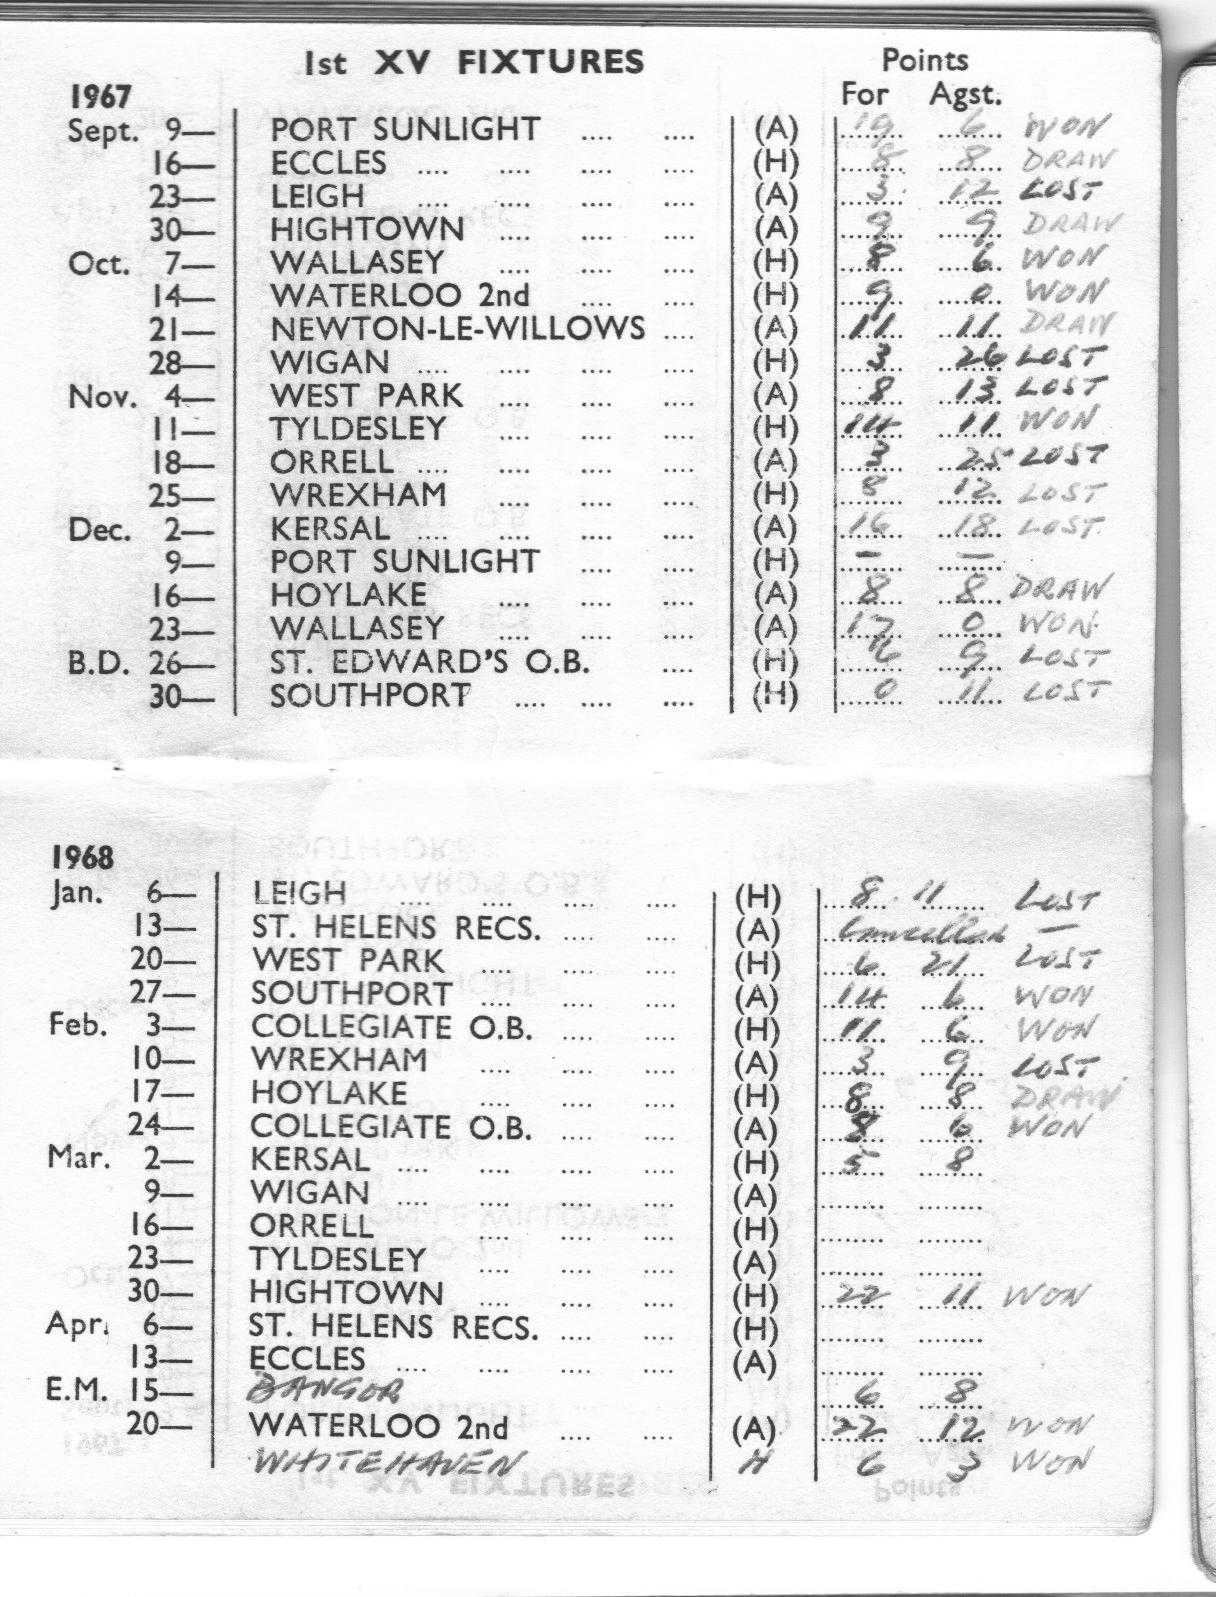 1st XV FIXTURES Points
1967 For Agst.
Sept. 9— PORT SUNLIGHT .... .... (A) 19 6 WON
16— ECCLES .... .... .... .... (H) 8 8 DRAW
23— LEIGH .... .... .... .... (A) 3 12 LOST
30— HIGHTOWN .... .... .... (A) 9 9 DRAW
Oct. 7— WALLASEY .... .... .... (H) 8 6 WON
14— WATERLOO 2nd .... .... (H) 9 0 WON
21— NEWTON-LE-WILLOWS .... (A) 11 11 DRAW
28— WIGAN .... .... .... .... (H) 3 26 LOST
Nov. 4— WEST PARK .... .... .... (A) 8 13 LOST
11— TYLDESLEY .... .... .... (H) 14 11 WON
18— ORRELL .... .... .... .... (A) 3 25 LOST
25— WREXHAM .... .... .... (H) 8 12 LOST
Dec. 2— KERSAL .... .... .... .... (A) 16 18 LOST
9— PORT SUNLIGHT .... .... (H) — —
16— HOYLAKE .... .... .... (A) 8 8 DRAW
23— WALLASEY .... .... .... (A) 17 0 WON
B.D. 26— ST. EDWARD'S O.B. .... (H) 6 9 LOST
30— SOUTHPORT .... .... .... (H) 0 11 LOST
1968
Jan. 6— LEIGH .... .... .... .... (H) 8 11 LOST
13— ST. HELENS RECS. .... .... (A) Cancelled —
20— WEST PARK .... .... .... (H) 6 21 LOST
27— SOUTHPORT .... .... .... (A) 14 6 WON
Feb. 3— COLLEGIATE O.B. .... .... (H) 11 6 WON
10— WREXHAM .... .... .... (A) 3 9 LOST
17— HOYLAKE .... .... .... (H) 8 8 DRAW
24— COLLEGIATE O.B. .... .... (A) 8 6 WON
Mar. 2— KERSAL .... .... .... .... (H) 5 8
9— WIGAN .... .... .... .... (A)
16— ORRELL .... .... .... .... (H)
23— TYLDESLEY .... .... .... (A)
30— HIGHTOWN .... .... .... (H) 22 11 WON
Apr. 6— ST. HELENS RECS. .... .... (H)
13— ECCLES .... .... .... .... (A)
E.M. 15— BANGOR 6 8
20— WATERLOO 2nd .... .... (A) 22 12 WON
WHITEHAVEN H 6 3 WON